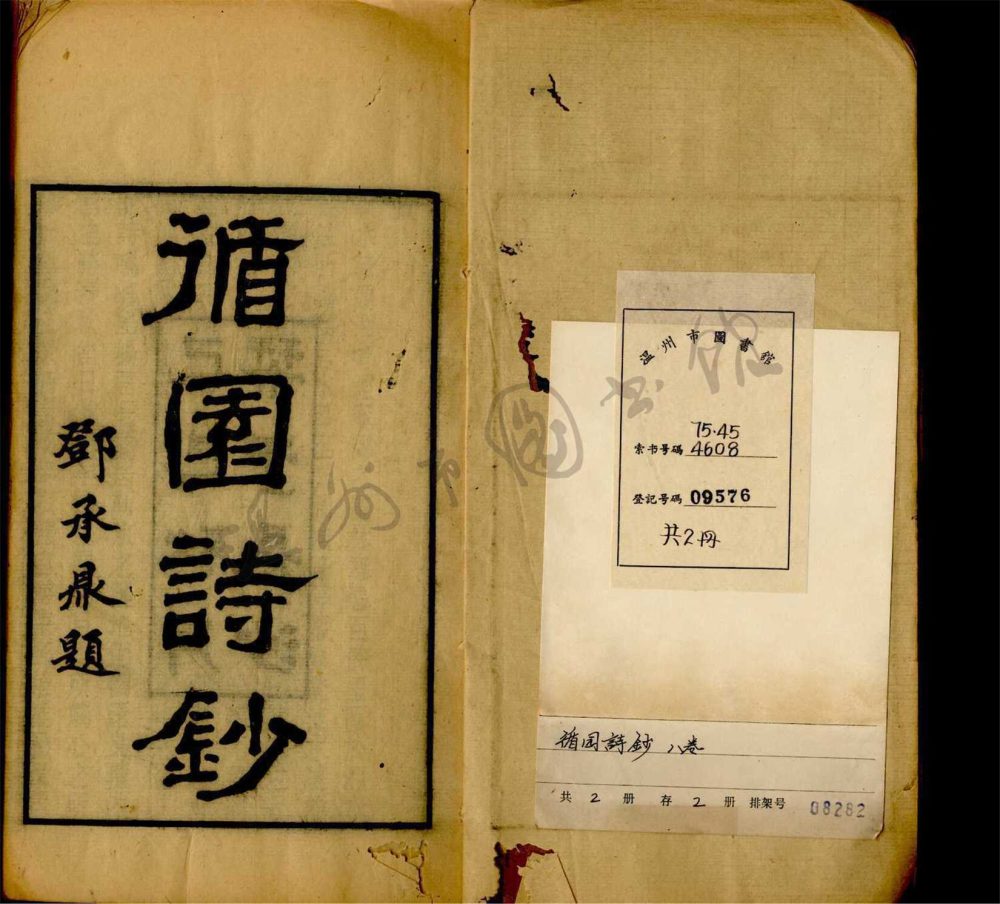 循園詩鈔
鄧承鼎題
温州市圖書館
75.45
索书号碼 4608
登記号碼 09576
共2冊
循园詩鈔 八卷
共 2 册 存 2 册 排架号 08282